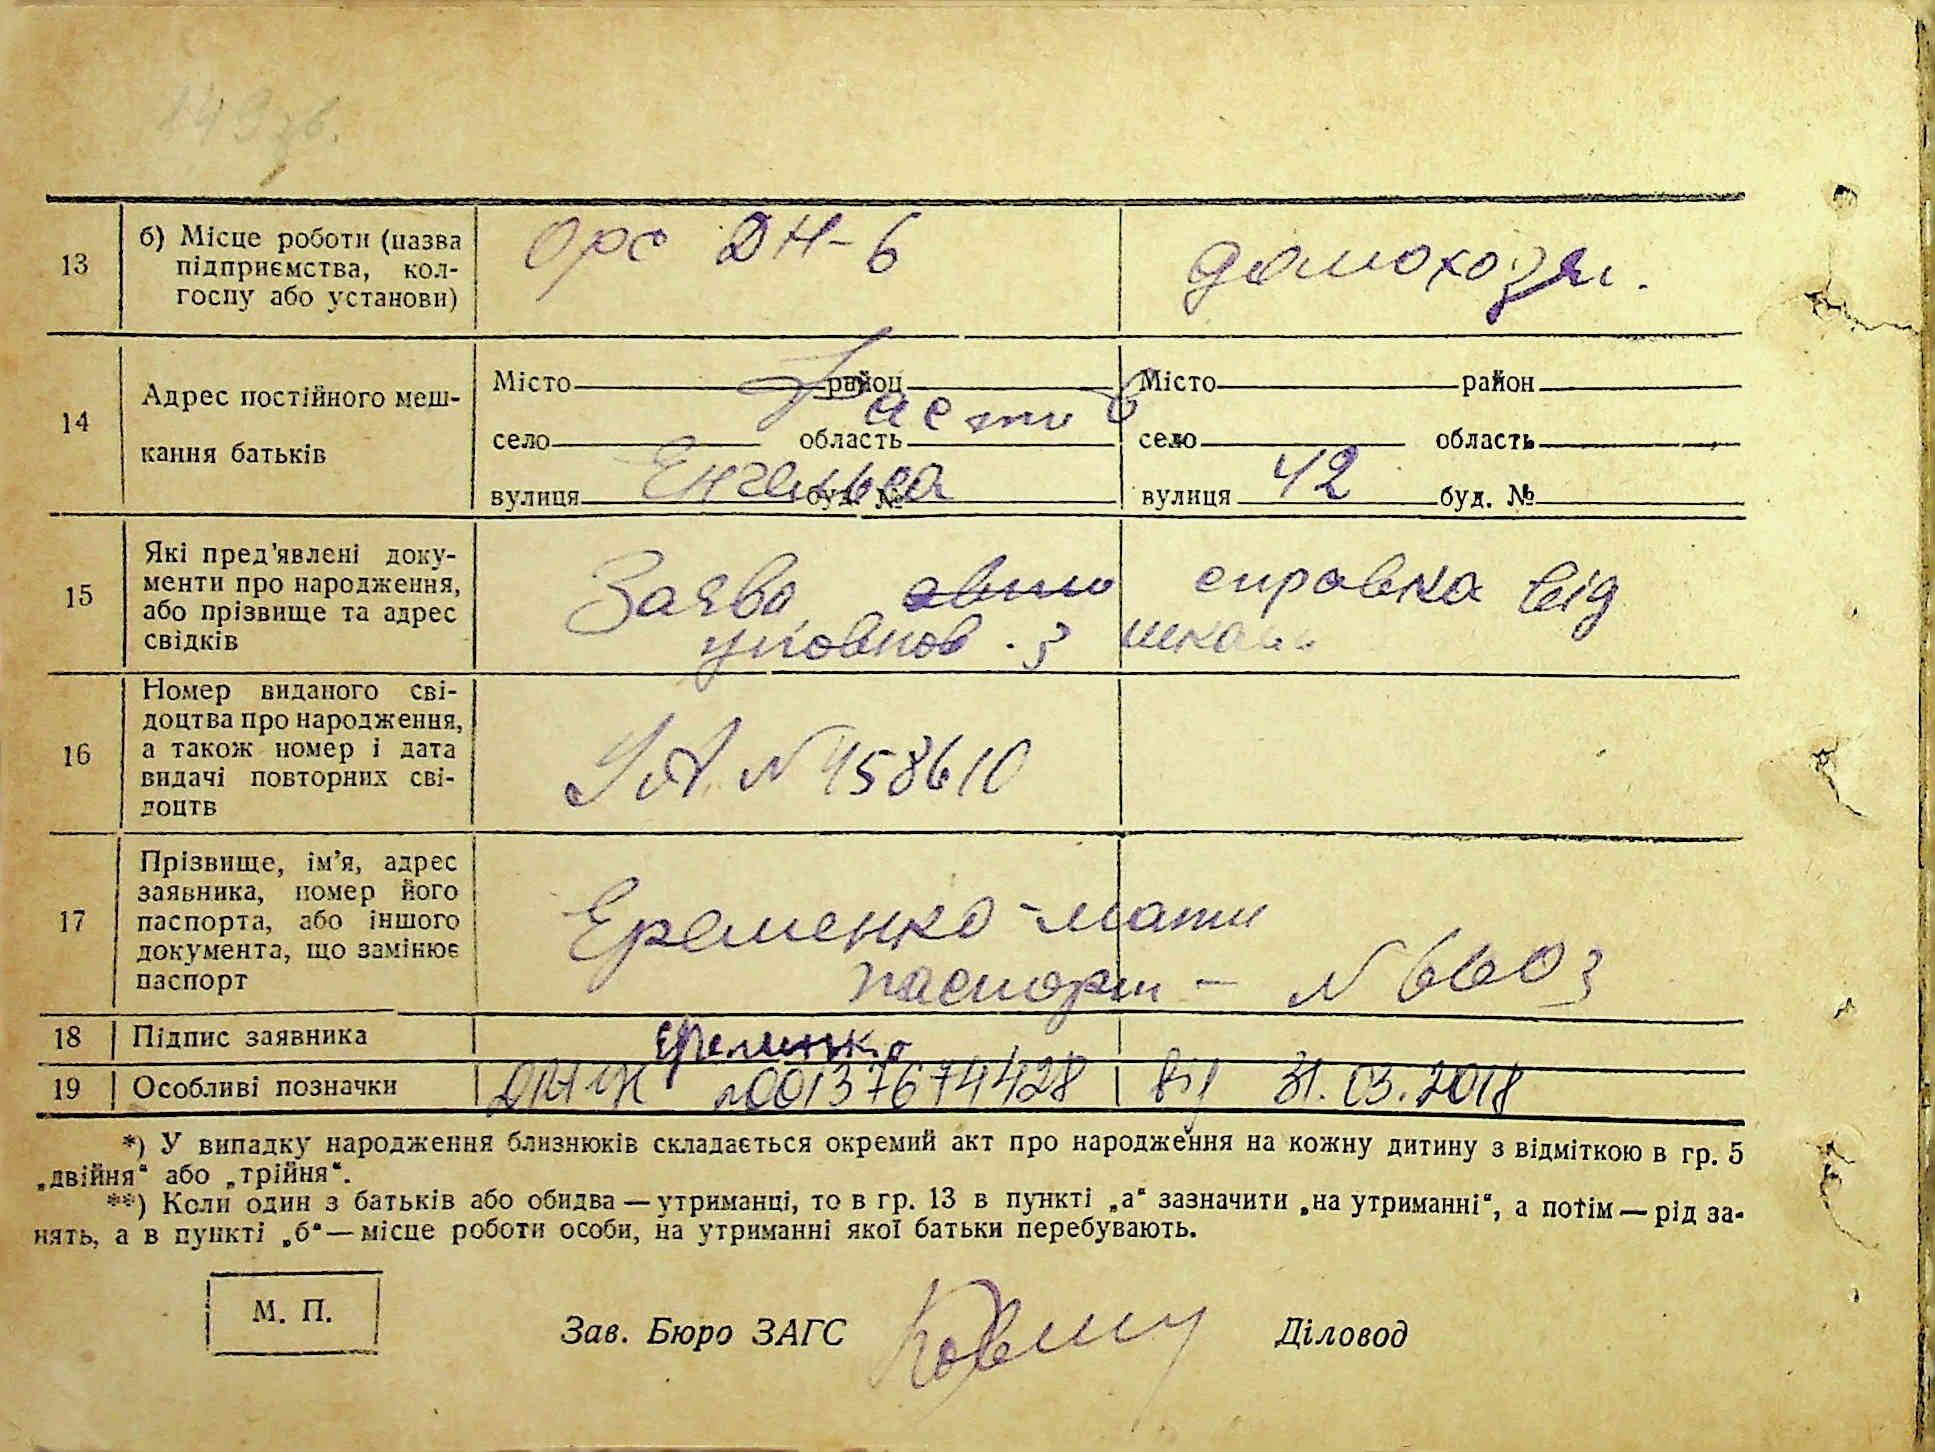 149 зв.
13 б) Місце роботи (назва Орс ДН-6 домохозяй.
підприємства, кол-
госпу або установи)
14 Адрес постійного меш- Місто район Місто район
Фастів
кання батьків село область село область
вулиця Енгельса буд. № вулиця 42 буд. №
15 Які пред'явлені доку- Заява справка від
менти про народження, уповнов. з
або прізвище та адрес
свідків
16 Номер виданого сві-
доцтва про народження,
а також номер і дата № 458610
видачі повторних сві-
доцтв
17 Прізвище, ім'я, адрес
заявника, номер його
паспорта, або іншого Єременко - мати
документа, що замінює паспорт - № 6603
паспорт
18 Підпис заявника Єременко
19 Особливі позначки №00137674428 від 31.03.2018
*) У випадку народження близнюків складається окремий акт про народження на кожну дитину з відміткою в гр. 5
„двійня“ або „трійня“.
**) Коли один з батьків або обидва — утриманці, то в гр. 13 в пункті „а“ зазначити „на утриманні“, а потім — рід за-
нять, а в пункті „б“ — місце роботи особи, на утриманні якої батьки перебувають.
М. П.
Зав. Бюро ЗАГС Діловод